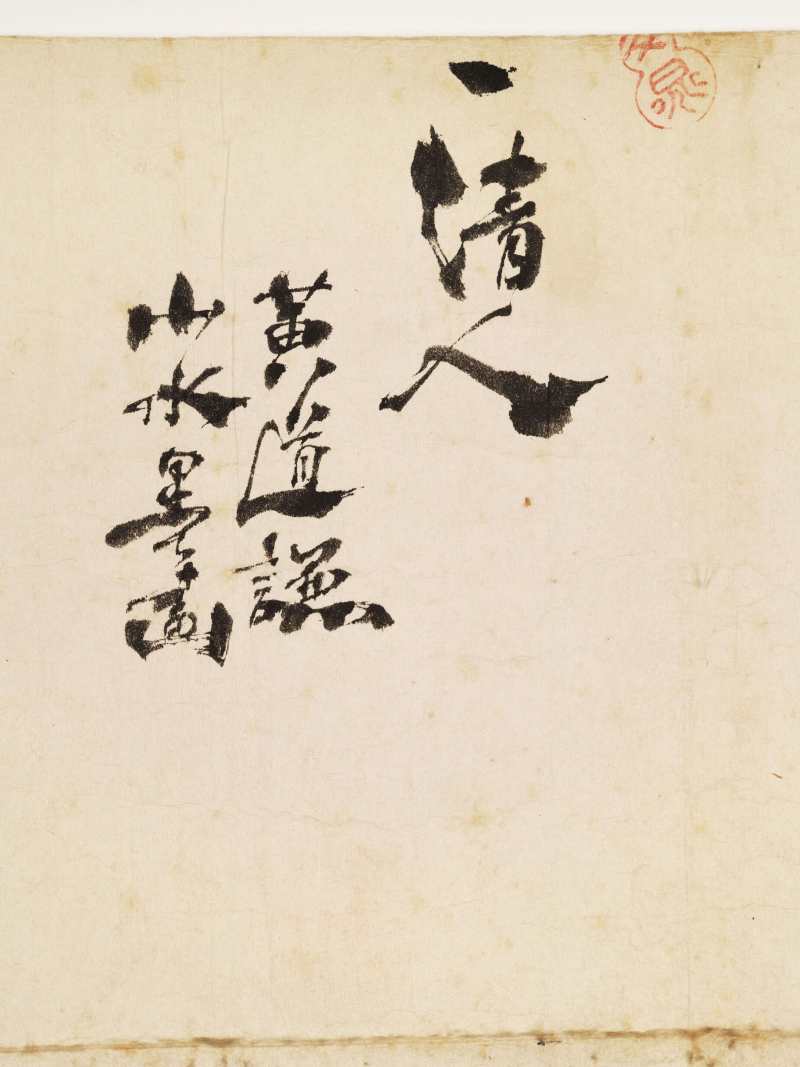 一清人
黄道謙
山水墨画